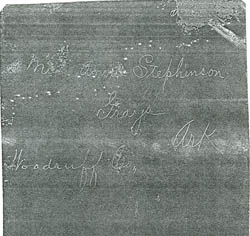 Stephinson
Grays
Ark
Woodruff Co,